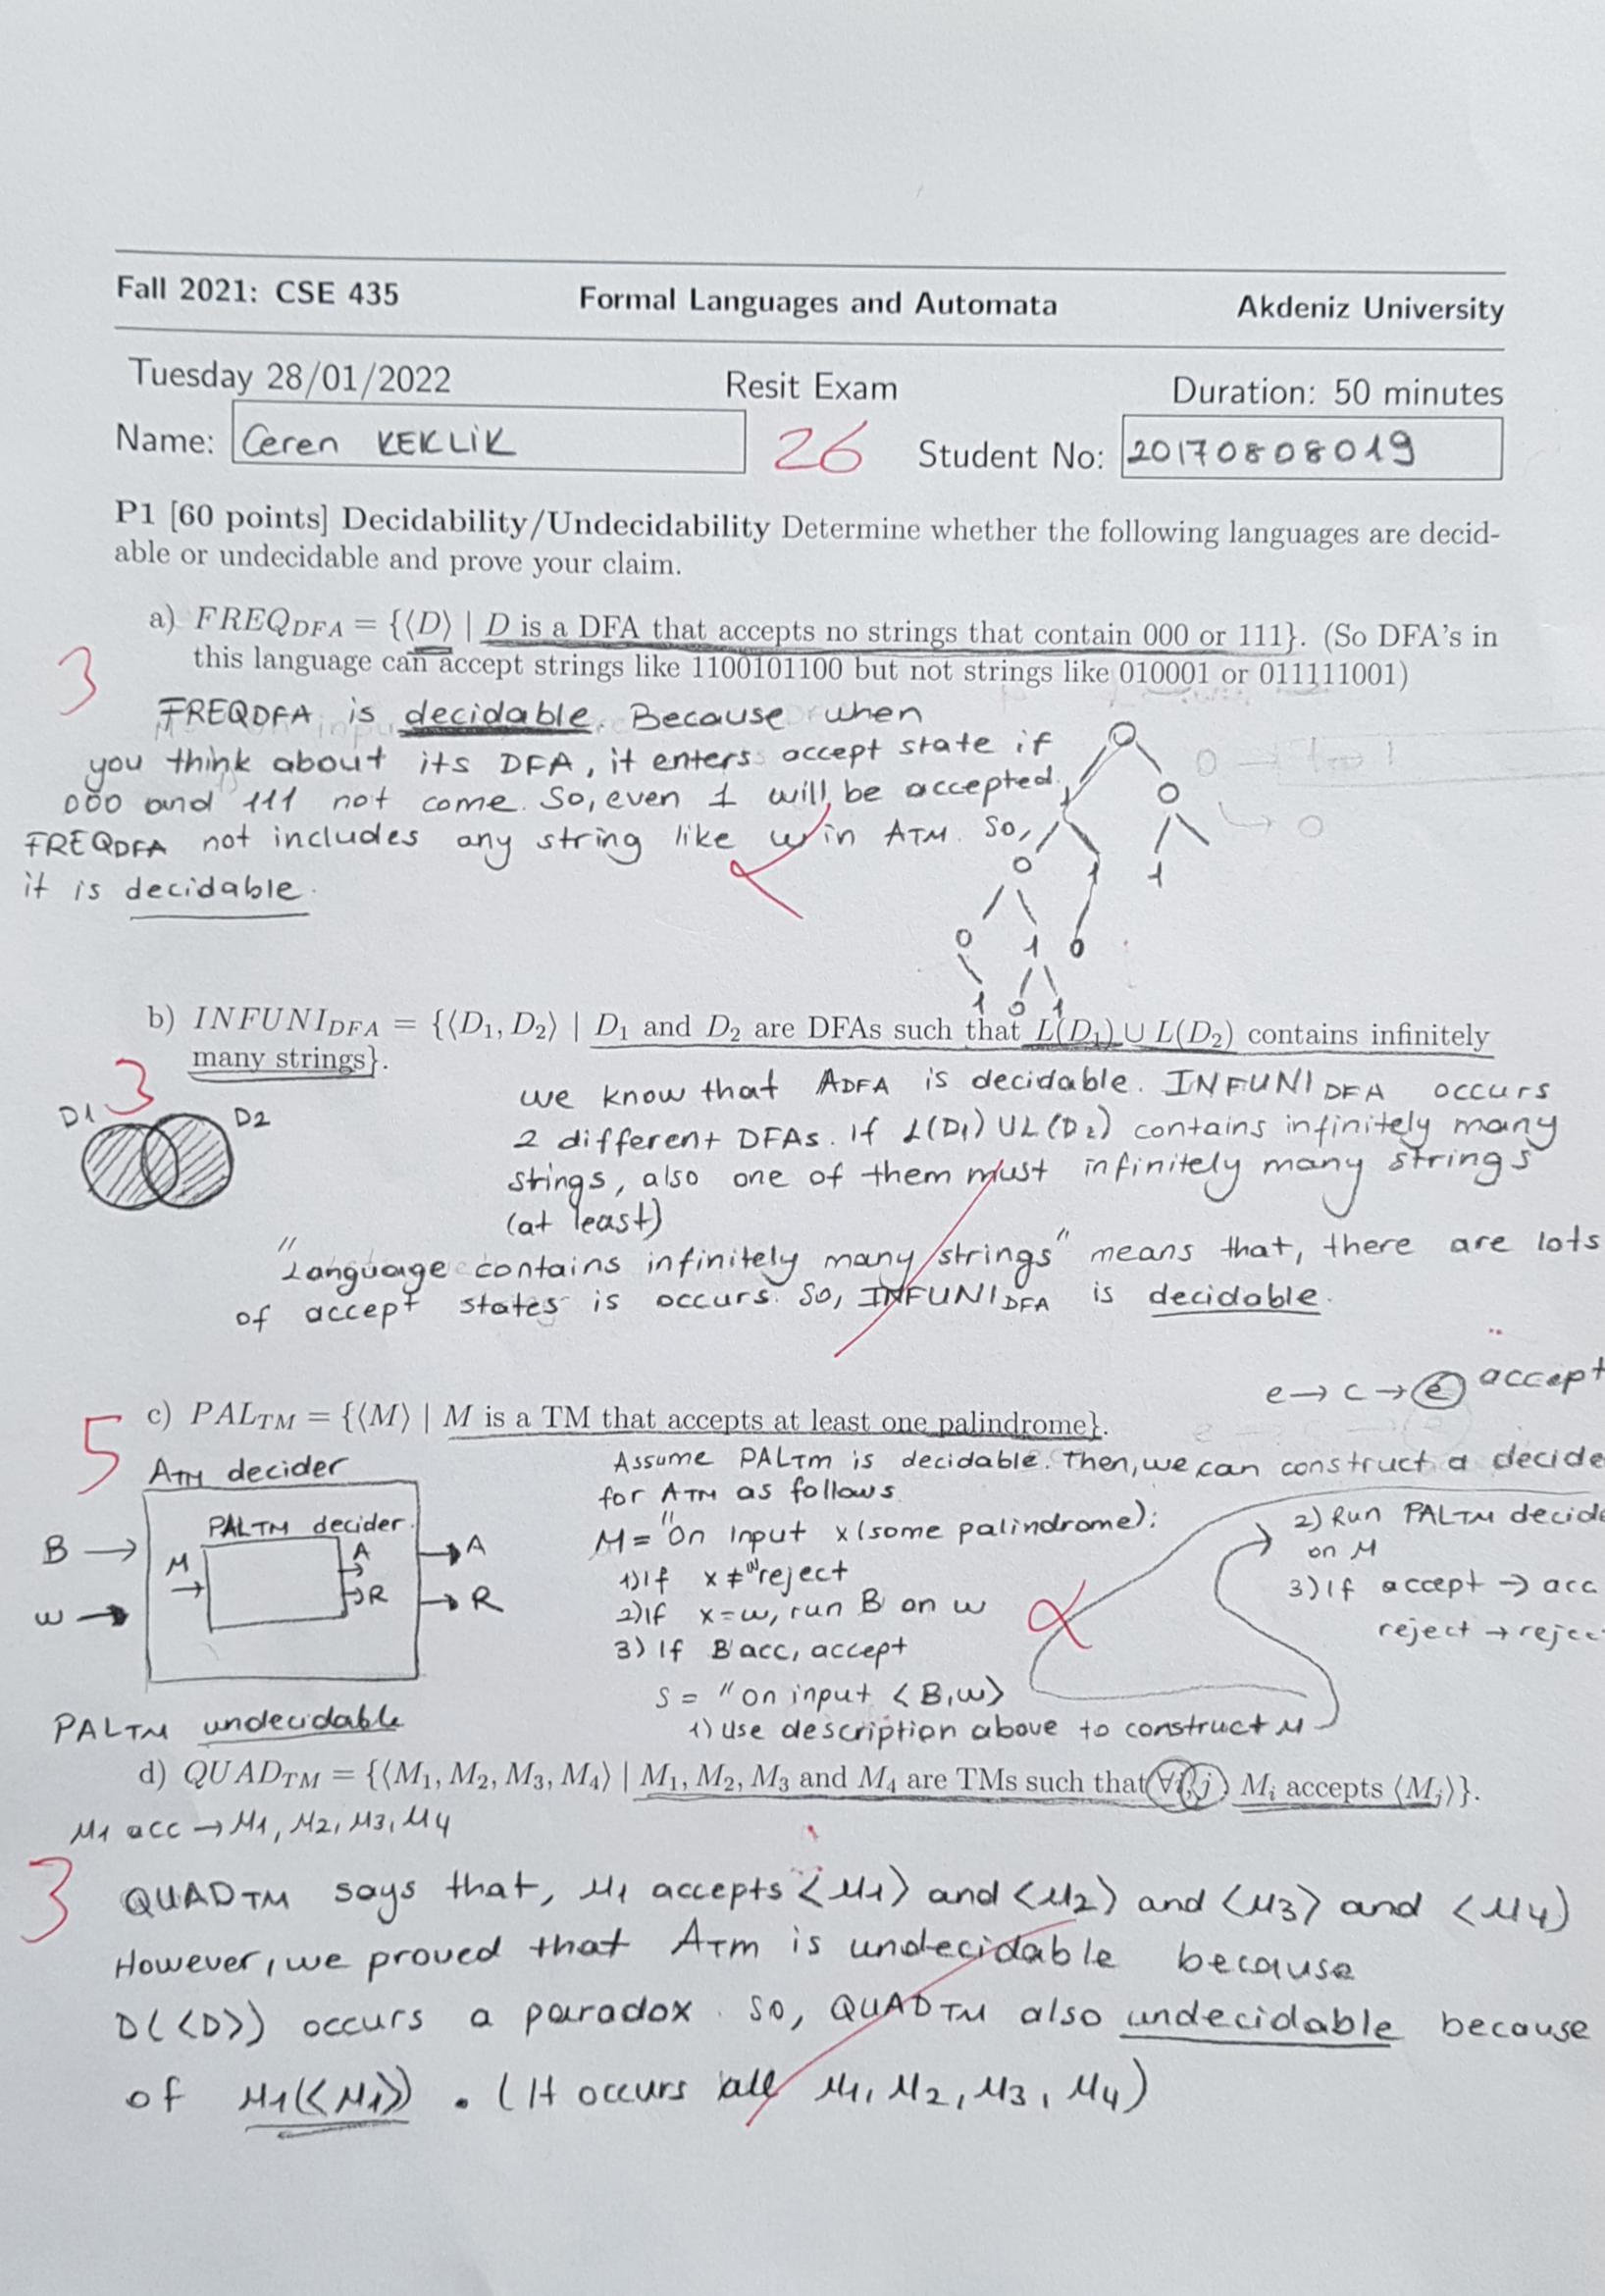 Fall 2021: CSE 435 Formal Languages and Automata Akdeniz University
Tuesday 28/01/2022 Resit Exam Duration: 50 minutes
Name: Ceren KEKLİK 26 Student No: 20170808019
P1 [60 points] Decidability/Undecidability Determine whether the following languages are decid-
able or undecidable and prove your claim.
a) FREQ_DFA = {⟨D⟩ | D is a DFA that accepts no strings that contain 000 or 111}. (So DFA's in
3
this language can accept strings like 1100101100 but not strings like 010001 or 011111001)
FREQDFA is decidable. Because when
you think about its DFA, it enters accept state if
000 and 111 not come. So, even 1 will be accepted.
FREQDFA not includes any string like w in ATM. So,
it is decidable.
0
0 1
0 1 0
1 0 1
b) INFUNI_DFA = {⟨D₁, D₂⟩ | D₁ and D₂ are DFAs such that L(D₁) ∪ L(D₂) contains infinitely
many strings}.
3
D1 D2
we know that ADFA is decidable. INFUNI DFA occurs
2 different DFAs. If L(D1) UL(D2) contains infinitely many
strings, also one of them must infinitely many strings
(at least)
"Language contains infinitely many strings" means that, there are lots
of accept states is occurs. So, INFUNI DFA is decidable.
e → c → e accept
c) PAL_TM = {⟨M⟩ | M is a TM that accepts at least one palindrome}.
5
ATM decider
PALTM decider
B → M → A → A
w → R → R
PALTM undecidable
Assume PALTM is decidable. Then, we can construct a decide
for ATM as follows
M = "On Input x (some palindrome):
1) If x ≠ w reject
2) If x = w, run B on w
3) If B acc, accept
S = "on input <B,w>
1) Use description above to construct M
2) Run PALTM decide
on M
3) If accept → acc
reject → rejec
d) QUAD_TM = {⟨M₁, M₂, M₃, M₄⟩ | M₁, M₂, M₃ and M₄ are TMs such that ∀i, j Mᵢ accepts ⟨Mⱼ⟩}.
M1 acc → M1, M2, M3, M4
3
QUADTM says that, M1 accepts <M1> and <M2> and <M3> and <M4>
However, we proved that ATM is undecidable because
D(<D>) occurs a paradox. So, QUADTM also undecidable because
of M1(<M1>). (It occurs all M1, M2, M3, M4)